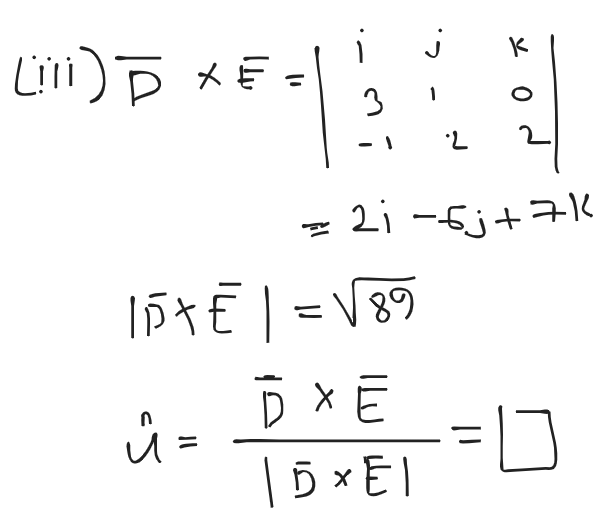 (iii) D̅ × E̅ = | i j k |
| 3 1 0 |
| -1 2 2 |
= 2i - 6j + 7k
|D̅ × E̅| = √89
û = D̅ × E̅ / |D̅ × E| = □